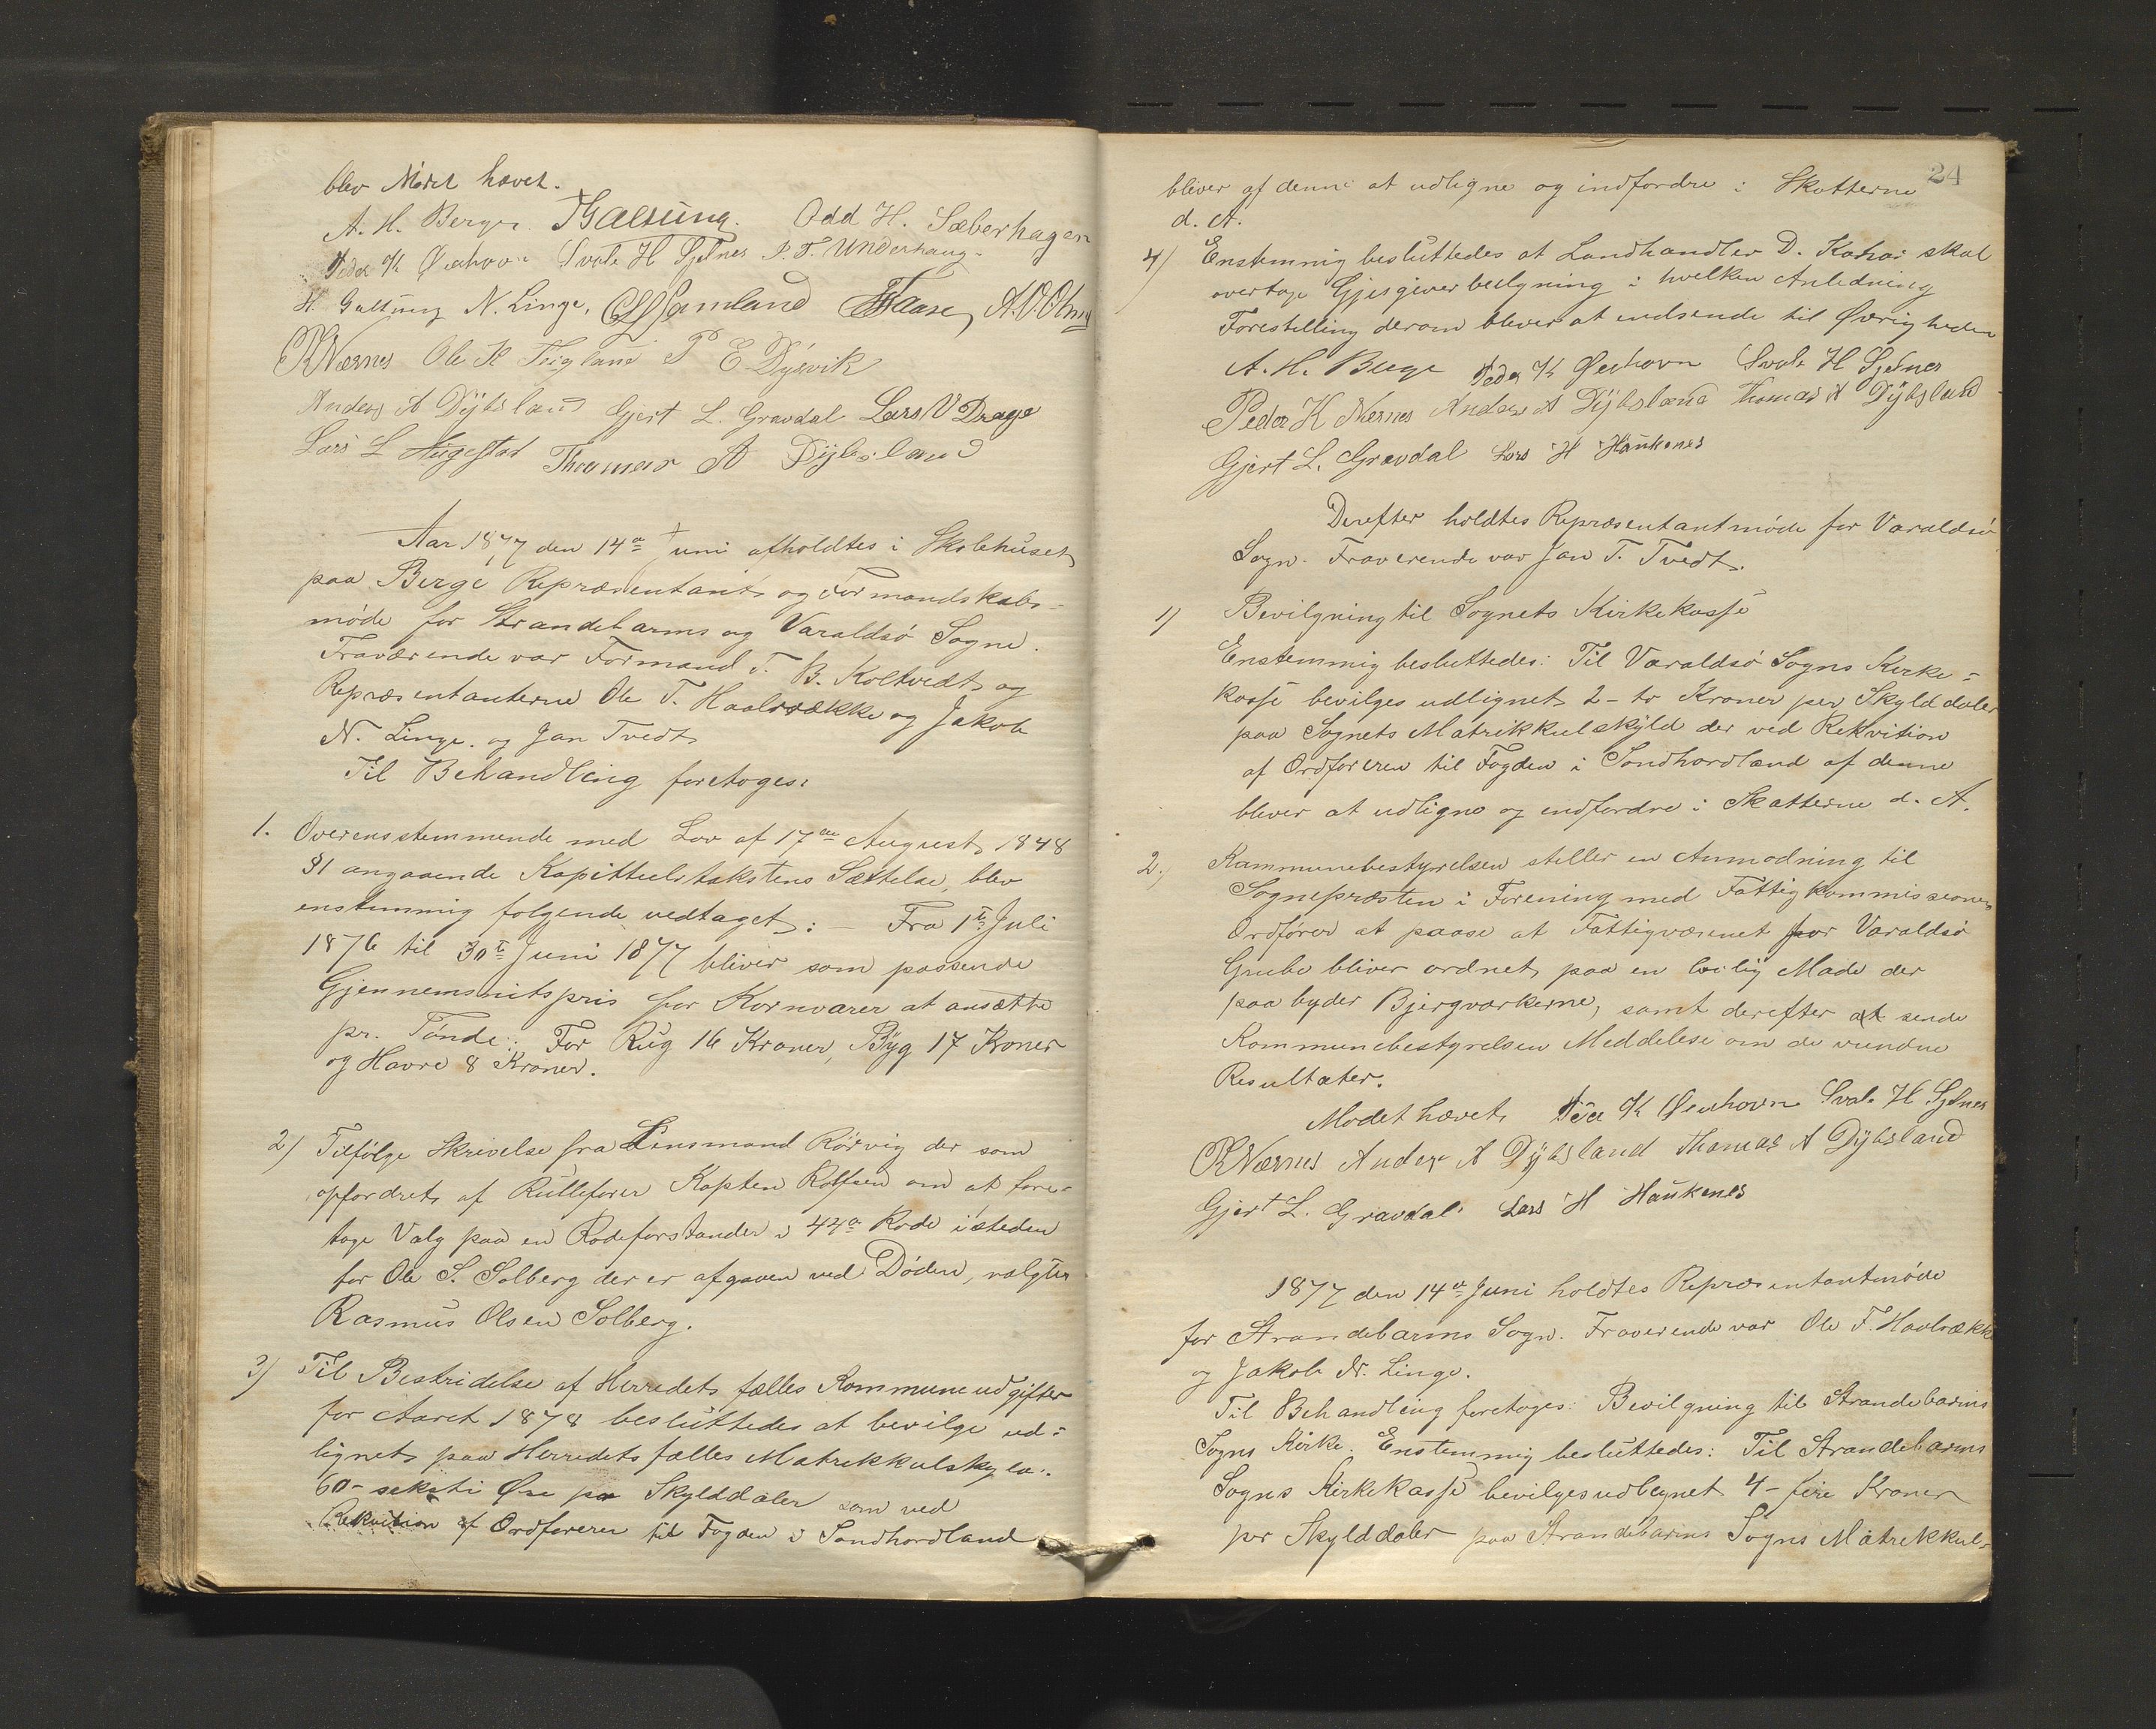 blev Mødet hævet.
A. H. Berge TGaltung. Odd H. Sæberhagen
Peder K Øvrhovn Svale H Gjelnes P. T. Underhaug.
H. Galtung N. Linge, Samland Aase, A. O.
PKNærnes Ole K Teigland P E Dysvik
Anders A Dybsland Gjert L. Gravdal Lars V Drage
Lars L Augestad Thomas A Dybsland
Aar 1877 den 14de Juni afholdtes i Skolehuset
paa Berge Repræsentant og Formandskabs-
møde for Strandebarms og Varaldsø Sogne.
Fraværende var Formand T. B. Koltvedt og
Repræsentanterne Ole T. Haalrække og Jakob
N. Linge. og Jan Tvedt
Til Behandling foretoges:
1. Overensstemmende med Lov af 17de August 1848
§1 angaaende Kapittelstakstens Sættelse, blev
enstemmig følgende vedtaget: – Fra 1te Juli
1876 til 30te Juni 1877 bliver som passende
Gjennemsnitspris for Kornvarer at ansætte
pr. Tønde: For Rug 16 Kroner, Byg 17 Kroner
og Havre 8 Kroner.
2) Tilfølge Skrivelse fra Lensmand Rørvig der som
opfordret af Rulleforer Kapten Rolfsen om at fore-
tage Valg paa en Rodeforstander i 44de Rode isteden
for Ole S. Solberg der er afgaaen ved Døden, valgtes
Rasmus Olsen Solberg.
3) Til Bestridelse af Herredets fælles Kommuneudgifter
for Aaret 1878 besluttedes at bevilge ud-
lignet paa Herredets fælles Matrikkulskyld:
60 – seksti Øre pr Skylddaler som ved
Rekvition af Ordføreren til Fogden i Søndhordland
24
bliver af denne at udligne og indfordre i Skatterne
d. A.
4) Enstemmig besluttedes at Landhandler D. Kaho skal
overtage Gjesgiverbevilgning i hvilken Anledning
Forestilling derom bliver at indsende til Øvrigheden
A. H. Berge Peder K Øvrhovn Svale H Gjelnes
Peder K Nærnes Anders A Dybsland Thomas A Dybsland
Gjert L. Gravdal Lars H Haukenes
Derefter holdtes Repræsentantmøde for Varaldsø
Sogn. Fraverende var Jan T. Tvedt.
1) Bevilgning til Sognets Kirkekasse
Enstemmig besluttedes: Til Varaldsø Sogns Kirke-
kasse bevilges udlignet 2 – to Kroner per Skylddaler
paa Sognets Matrikkulskyld der ved Rekvition
af Ordføreren til Fogden i Søndhordland af denne
bliver at udligne og indfordre i Skatterne d. A.
2) Kommunebestyrelsen stiller en Anmodning til
Sognepræsten i Forening med Fattigkommissionens
Ordfører at paase at Fattigvæsenet for Varaldsø
Grube bliver ordnet paa en lovlig Made der
paa byder Bjergværkerne, samt derefter at sende
Kommunebestyrelsen Meddelese om de vundne
Resultater.
Mødet hævet Peder K Øvrhovn Svale H Gjelnes
PKNærnes Anders A Dybsland Thomas A Dybsland
Gjert L. Gravdal Lars H Haukenes
1877 den 14de Juni holdtes Repræsentantmøde
for Strandebarms Sogn. Fraverende var Ole T. Haalrække
og Jakob N. Linge.
Til Behandling foretoges: Bevilgning til Strandebarms
Sogns Kirke. Enstemmig besluttedes: Til Strandebarms
Sogns Kirkekasse bevilges udlignet 4 – fire Kroner
per Skylddaler paa Strandebarms Sogns Matrikkul-